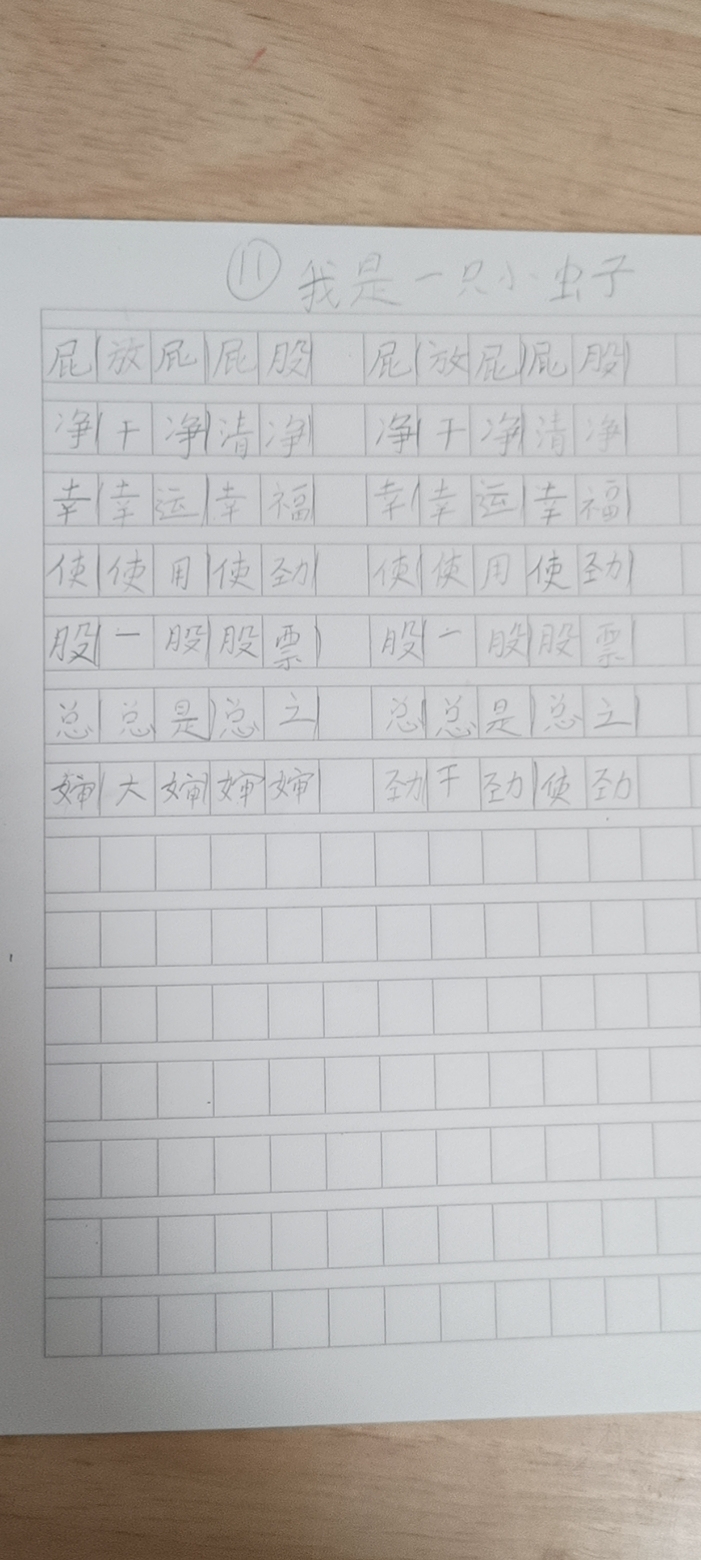 ⑪ 我是一只小虫子
屁(放屁)屁股 屁(放屁)屁股
净(干净)清净 净(干净)清净
幸(幸运)幸福 幸(幸运)幸福
使(使用)使劲 使(使用)使劲
股(一股)股票) 股(一股)股票
总(总是)总之) 总(总是)总之)
婶(大婶)婶婶 劲(干劲)使劲